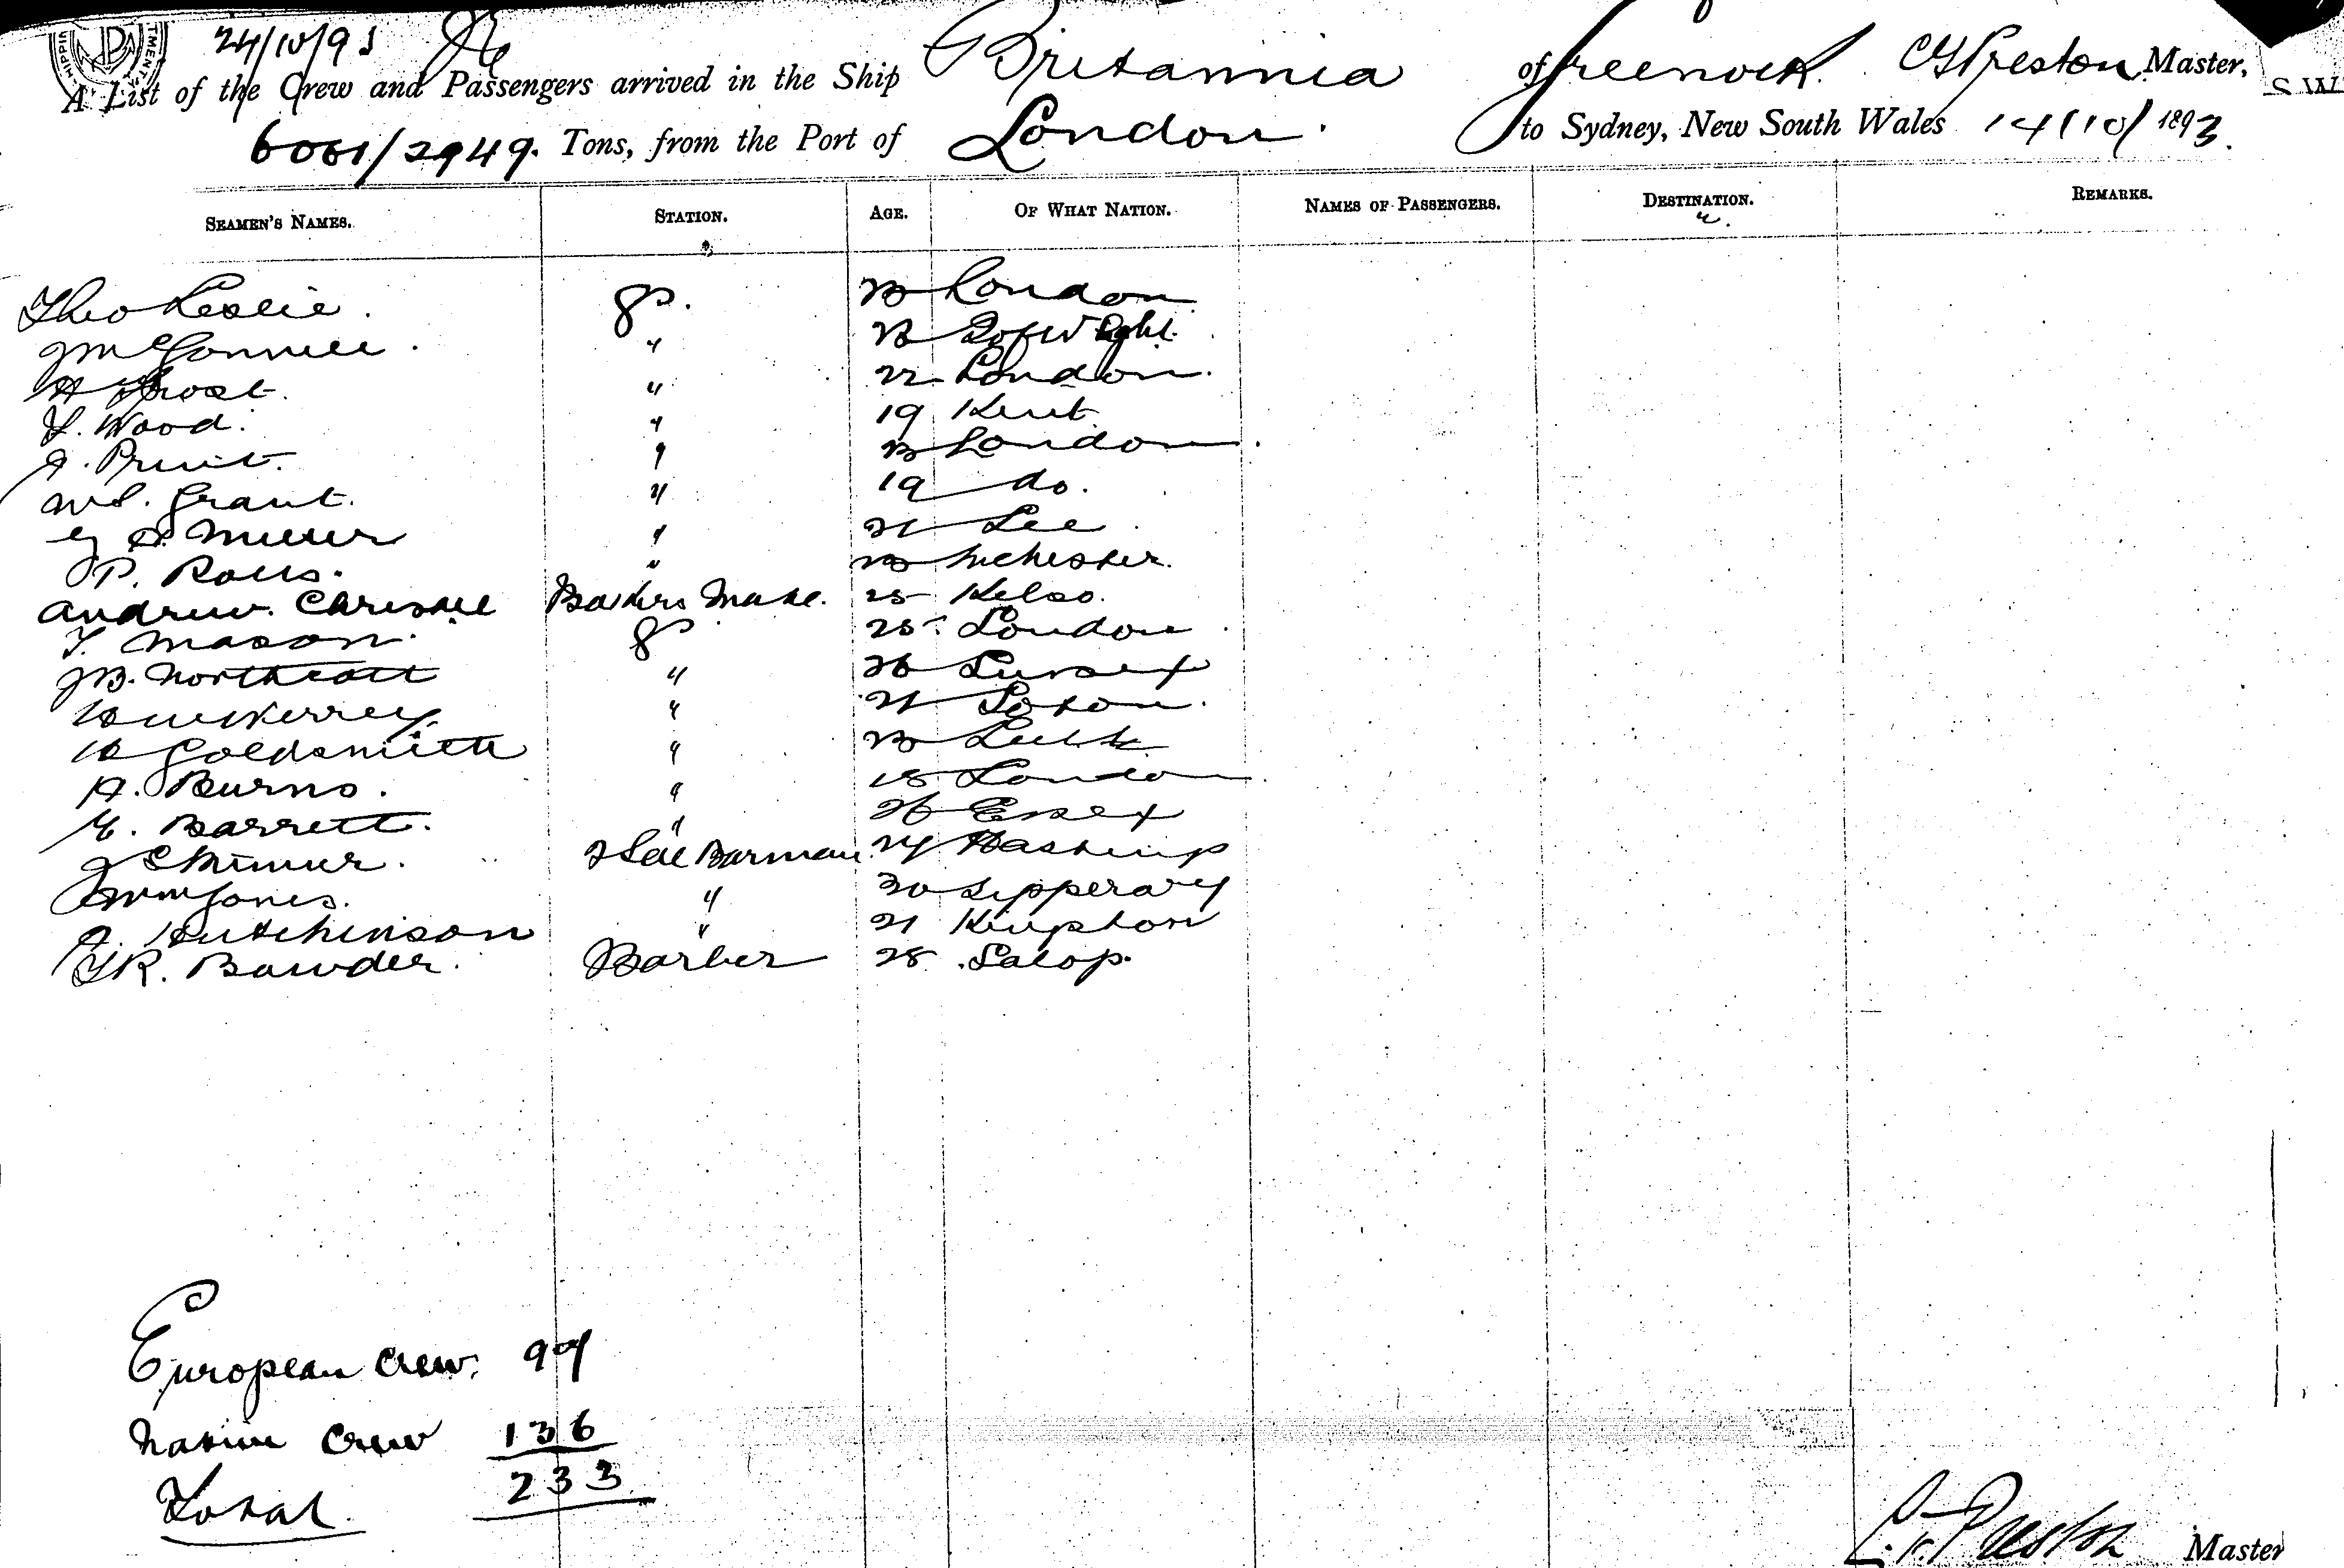 24/10/93
A List of the Crew and Passengers arrived in the Ship Britannia of Greenock C G Preston Master,
6061/2949. Tons, from the Port of London. to Sydney, New South Wales 14/10/1893.
SEAMEN'S NAMES. STATION. AGE. OF WHAT NATION. NAMES OF PASSENGERS. DESTINATION. REMARKS.
Theo Leslie. 23 London
J McConnell. " 23 I of Wight.
H Frost. " 22 London.
Wood. " 19 Kent
" 23 London.
Grant. " 19 do.
" 21 Lee
P. " 23 Mchester.
Andrew Christie Bakers Mate. 25 Kelso.
T. Mason. 25 London
J B. Northcott " 26 Sussex
" 21
H Goldsmith " 23 Leith
A. Burns. " 18 London.
Barrett. " 26 Essex
Barman 24 Hastings
Wm Jones. " 30 Tipperary
Hutchinson " 21 Kingston
R. Bowder. Barber 28 Salop.
European Crew. 97
Native Crew 136
Total. 233
Preston Master